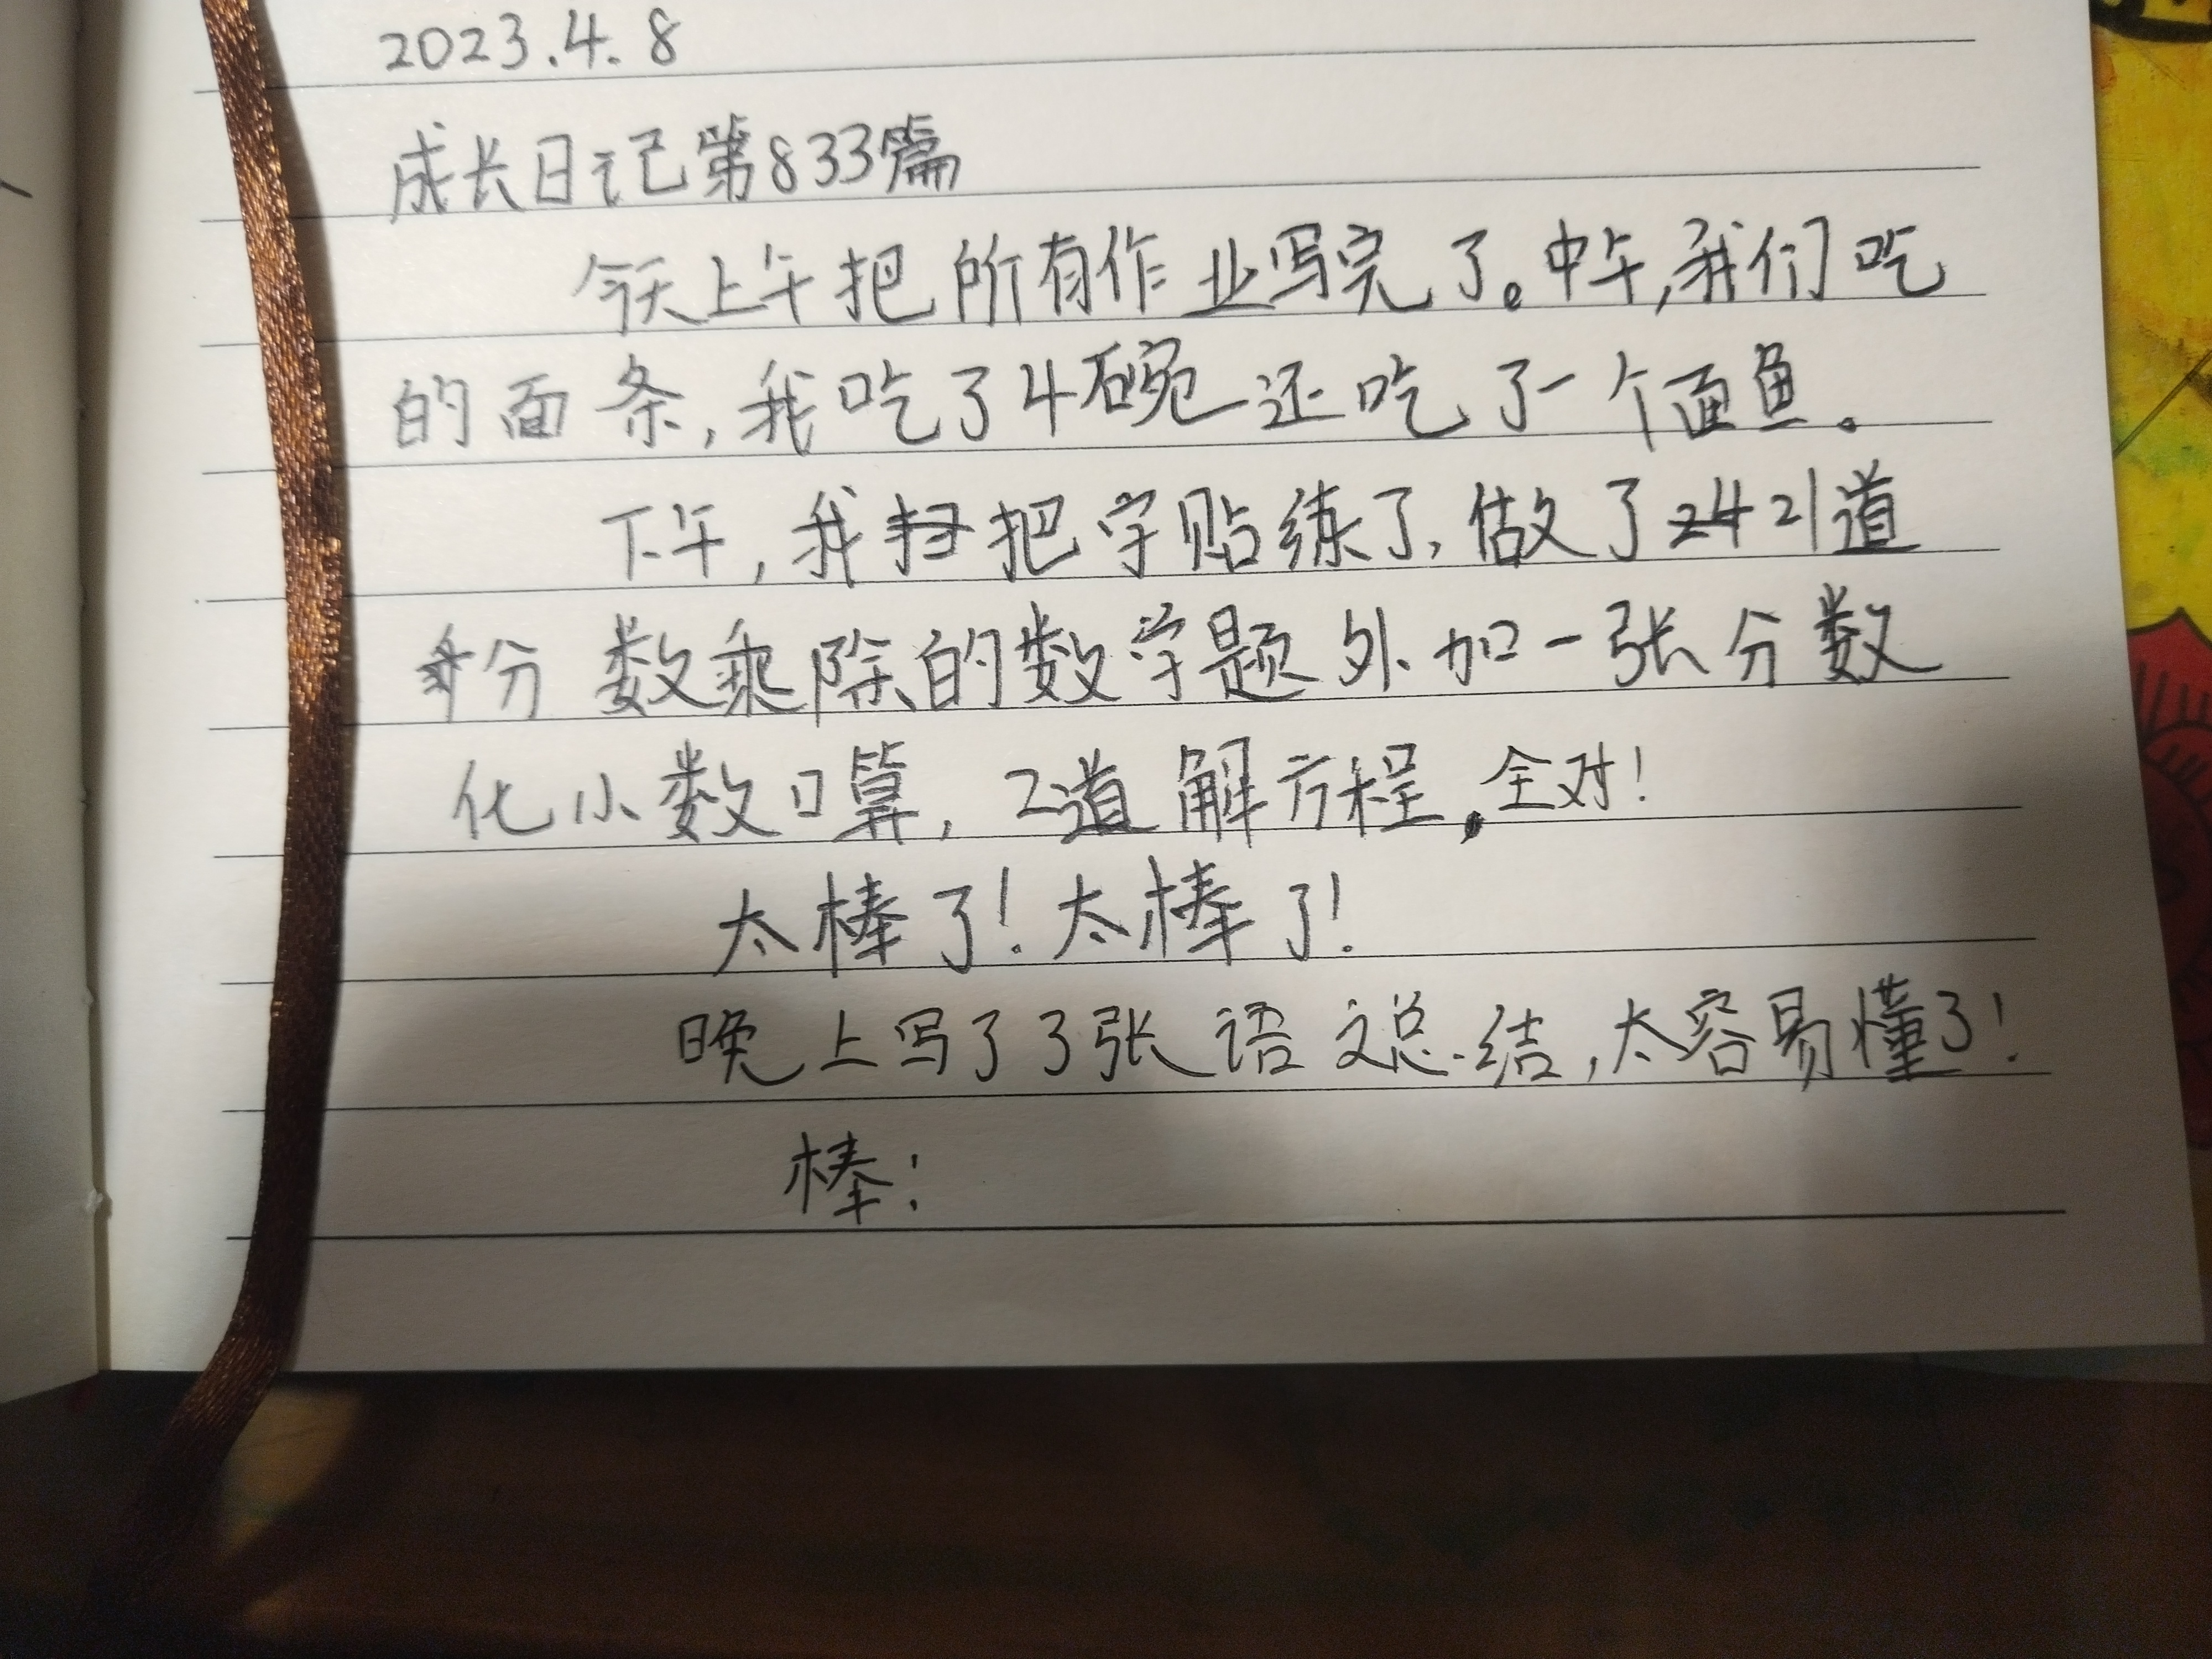 2023.4.8
成长日记第833篇
今天上午把所有作业写完了。中午,我们吃
的面条,我吃了4碗还吃了一个面鱼。
下午,我把字贴练了,做了21道
分数乘除的数学题外加一张分数
化小数口算,2道解方程,全对!
太棒了!太棒了!
晚上写了3张语文总结,太容易懂了!
棒!